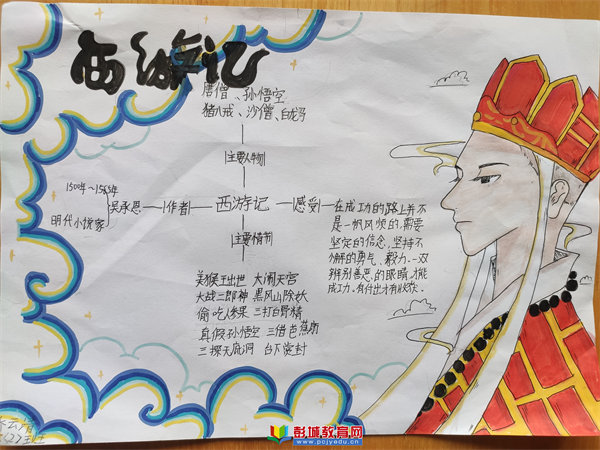 西游记
唐僧、孙悟空
猪八戒、沙僧、白龙马
主要人物
1500年~1582年
明代小说家
吴承恩
作者
西游记
感受
在成功的路上并不
是一帆风顺的,需要
坚定的信念,坚持不
懈的勇气、毅力.一双
辨别善恶的眼睛,才能
成功.有付出才有收获.
主要情节
美猴王出世 大闹天宫
大战二郎神 黑风山除妖
偷吃人参果 三打白骨精
真假孙悟空 三借芭蕉扇
三探无底洞 台下觉封
彭城教育网
www.pcjyedu.cn